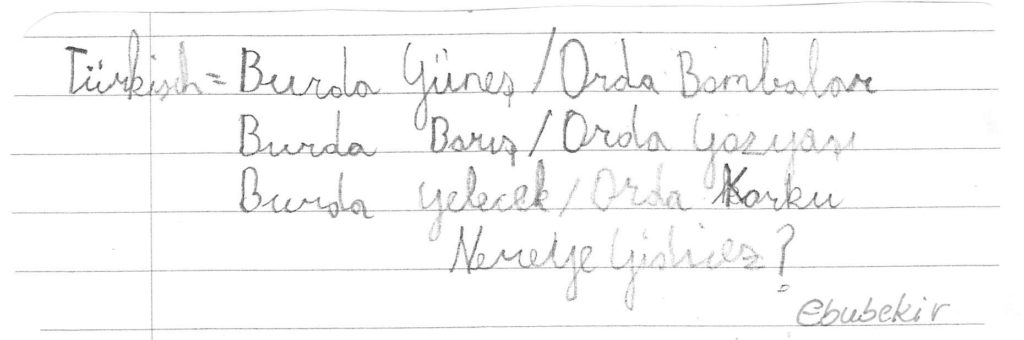 Türkisch = Burda Güneş / Orda Bombalar
Burda Barış / Orda Gözyaşı
Burda gelecek / Orda Korku
Nereye ?
ebubekir